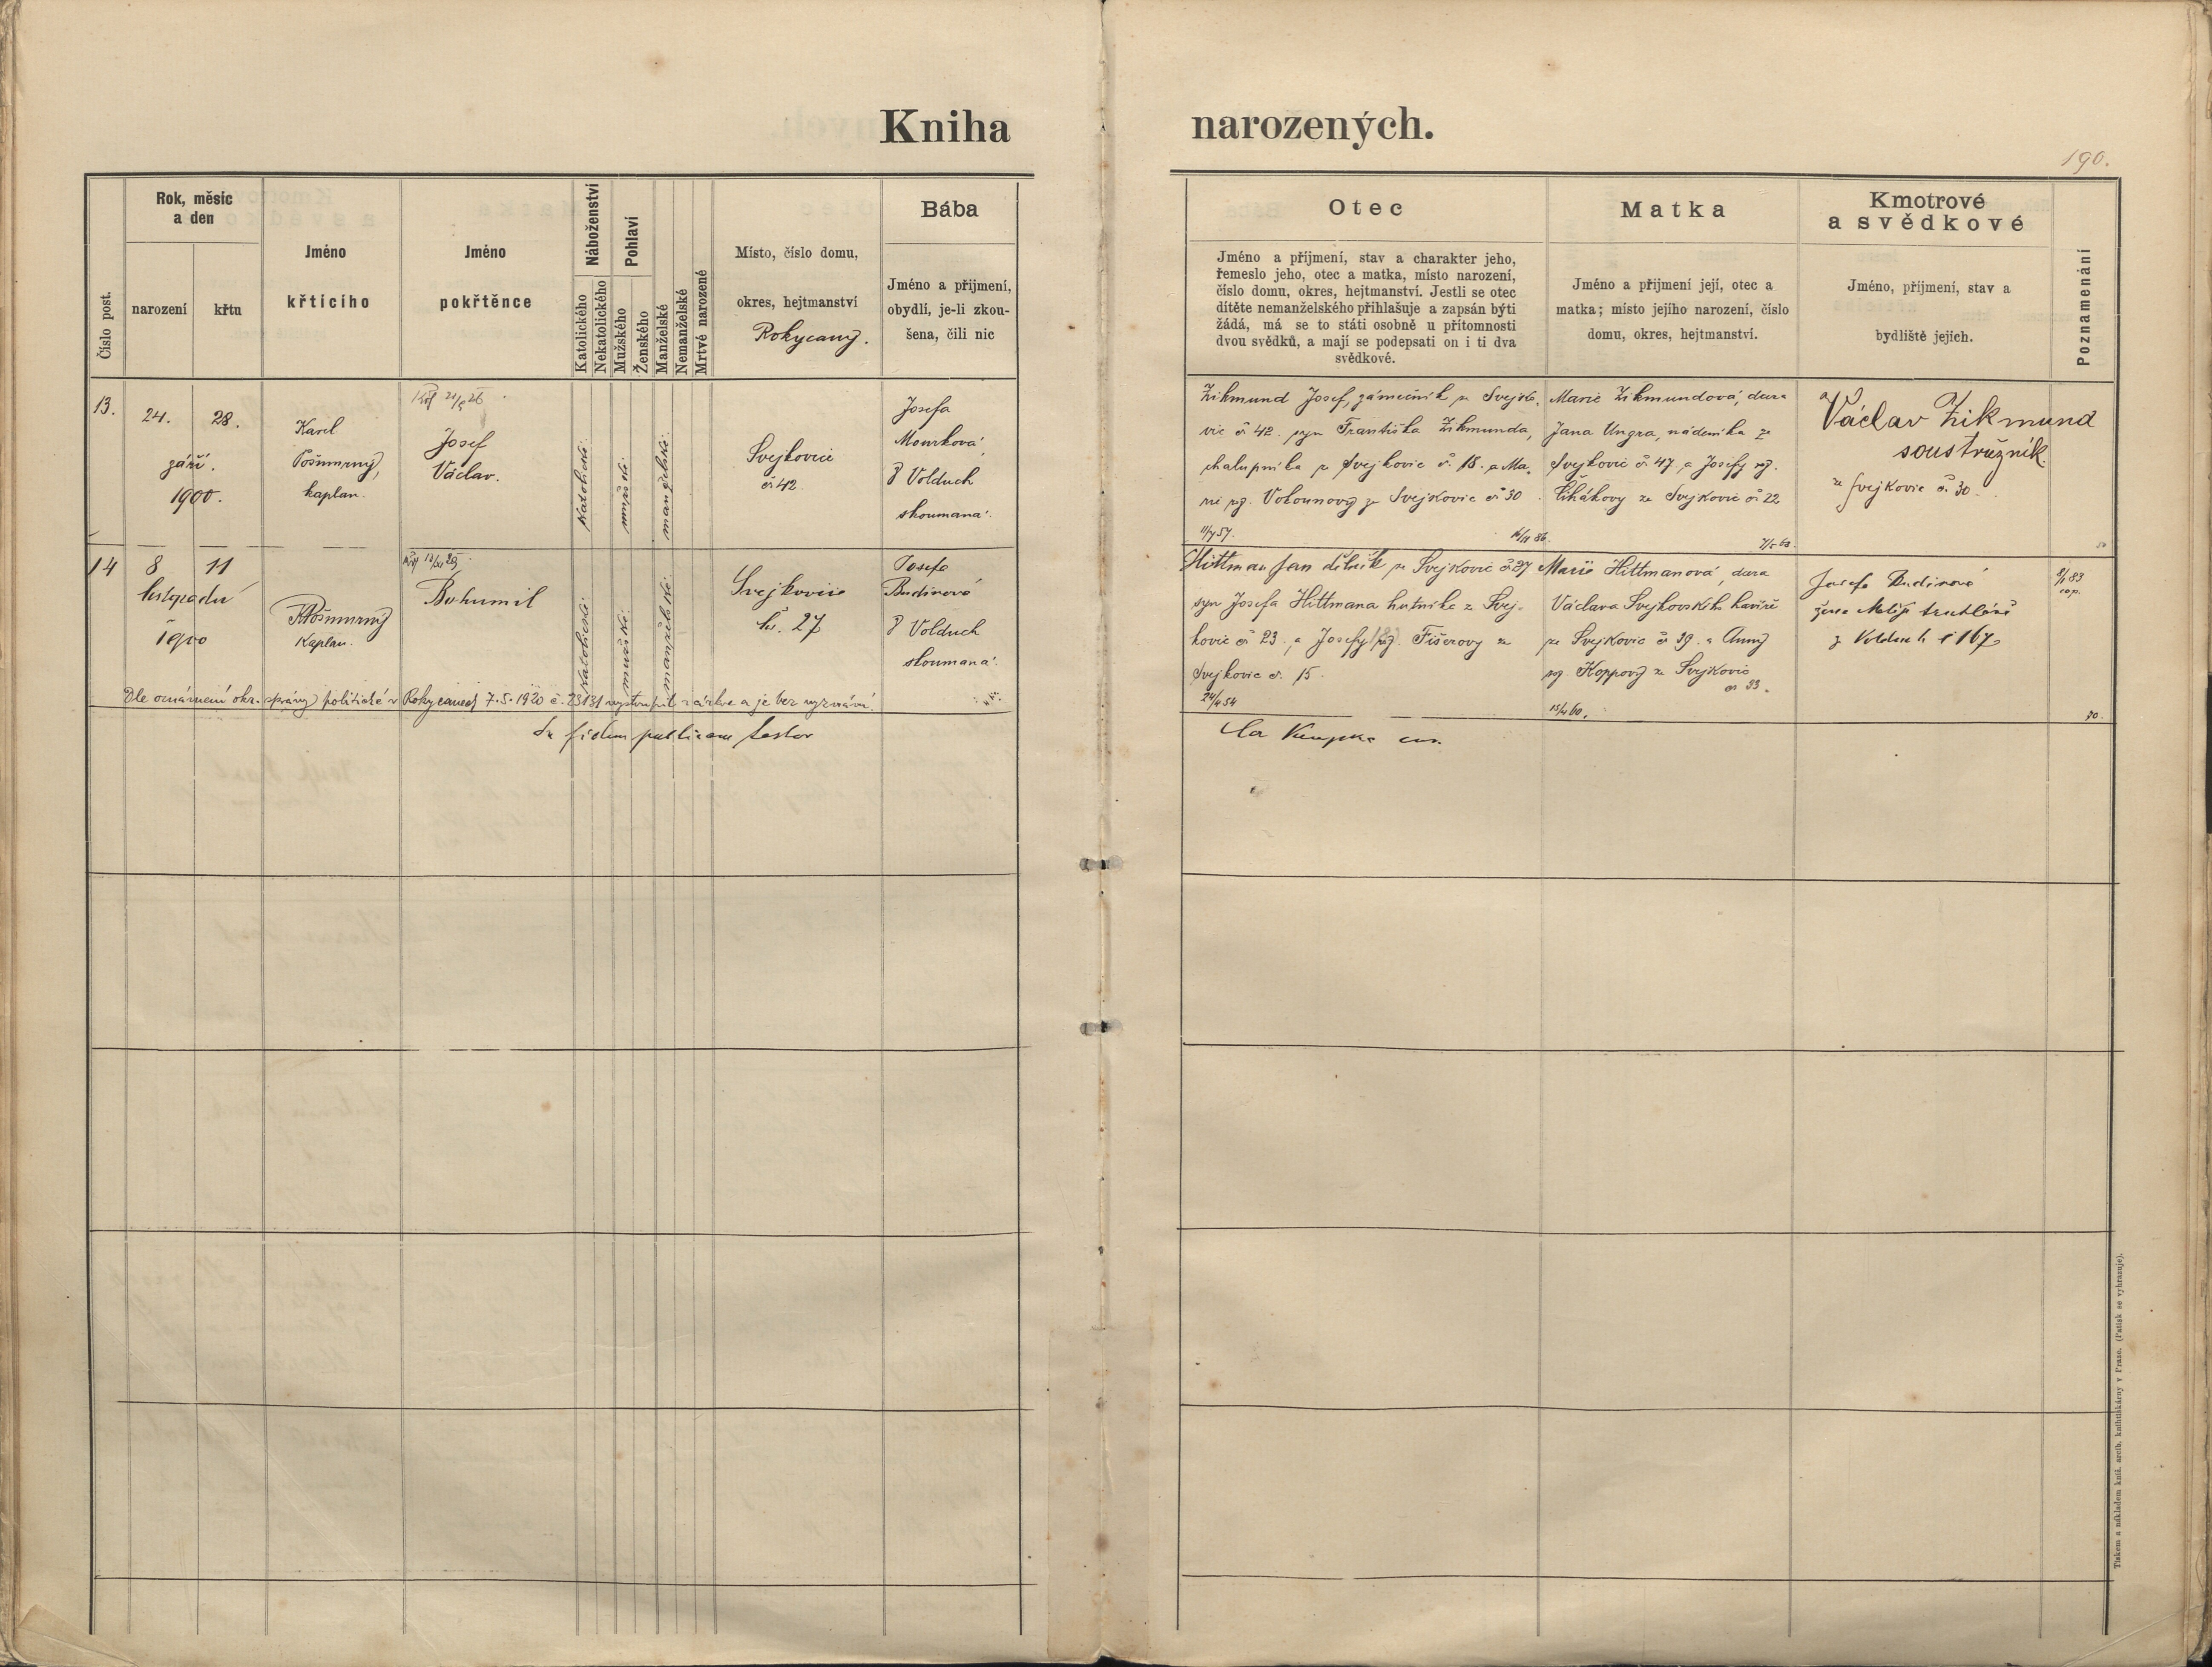 Kniha narozených.
190.
Číslo post.
Rok, měsíc
a den
narození
křtu
Jméno
křtícího
Jméno
pokřtěnce
Náboženství
Katolického
Nekatolického
Pohlaví
Mužského
Ženského
Manželské
Nemanželské
Mrtvé narozené
Místo, číslo domu,
okres, hejtmanství
Rokycany.
Bába
Jméno a přijmení,
obydlí, je-li zkou-
šena, čili nic
Otec
Jméno a příjmení, stav a charakter jeho,
řemeslo jeho, otec a matka, místo narození,
číslo domu, okres, hejtmanství. Jestli se otec
dítěte nemanželského přihlašuje a zapsán býti
žádá, má se to státi osobně u přítomnosti
dvou svědků, a mají se podepsati on i ti dva
svědkové.
Matka
Jméno a příjmení její, otec a
matka; místo jejího narození, číslo
domu, okres, hejtmanství.
Kmotrové
a svědkové
Jméno, příjmení, stav a
bydliště jejich.
Poznamenání
13.
24.
28.
září.
1900.
Karel
Pošmurný,
kaplan.
Josef
Václav.
katolické.
mužské.
manželské.
Svejkovice
č. 42
Josefa
Mourková,
z Volduch
zkoumaná.
Zikmund Josef, zámečník ze Svejko-
vic č. 42. syn Františka Zikmunda,
chalupníka ze Svejkovic č. 18. a Ma-
rie roz. Volounovy ze Svejkovic č. 30
11/7 57.
Marie Zikmundová, dcera
Jana Ungra, nádeníka ze
Svejkovic č. 47 a Josefy roz.
Cihákovy ze Svejkovic č. 22
Václav Zikmund
soustružník.
ze Svejkovic č. 30.
14
8
11
listopadu
1900
Pošmurný
Kaplan.
Bohumil
katolické.
mužské.
manželské.
Svejkovice
čís. 27
Josefa
Budínová
z Volduch
zkoumaná.
Hittman Jan dělník ze Svejkovic č. 27
syn Josefa Hittmana hutníka z Svej-
kovic č. 23, a Josefy roz. Fišerovy ze
Svejkovic č. 15.
24/4 54
Marie Hittmanová, dcera
Václava Svejkovského havíře
ze Svejkovic č. 39. a Anny
roz. Koppovy ze Svejkovic
č. 33.
Josefa Budínová
z Volduch č 167
Dle oznámení okr. správy politické v Rokycanech 7.5.1920 č. 23131 vystoupil z církve a je bez vyznání.
In fidem publicam testor
Tiskem a nákladem kníž. arcib. knihtiskárny v Praze. (Patisk se vyhrazuje).